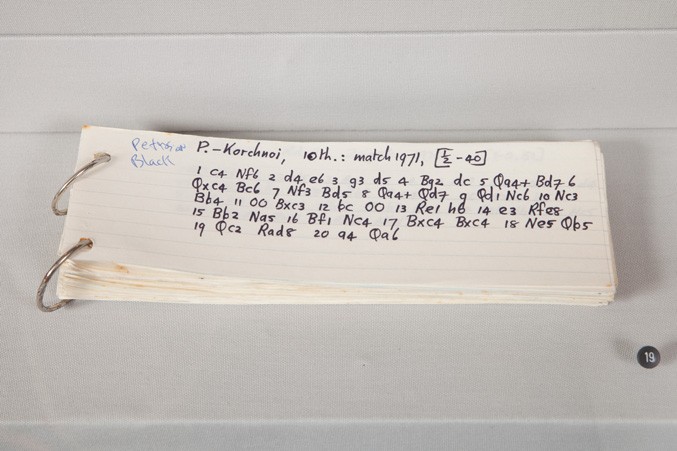 Petros. Black
P.–Korchnoi, 10th.: match 1971, [½–40]
1 c4 Nf6 2 d4 e6 3 g3 d5 4 Bg2 dc 5 Qa4+ Bd7 6
Qxc4 Bc6 7 Nf3 Bd5 8 Qa4+ Qd7 9 Qd1 Nc6 10 Nc3
Bb4 11 00 Bxc3 12 bc 00 13 Re1 h6 14 e3 Rfe8
15 Bb2 Na5 16 Bf1 Nc4 17 Bxc4 Bxc4 18 Ne5 Qb5
19 Qc2 Rad8 20 a4 Qa6
19